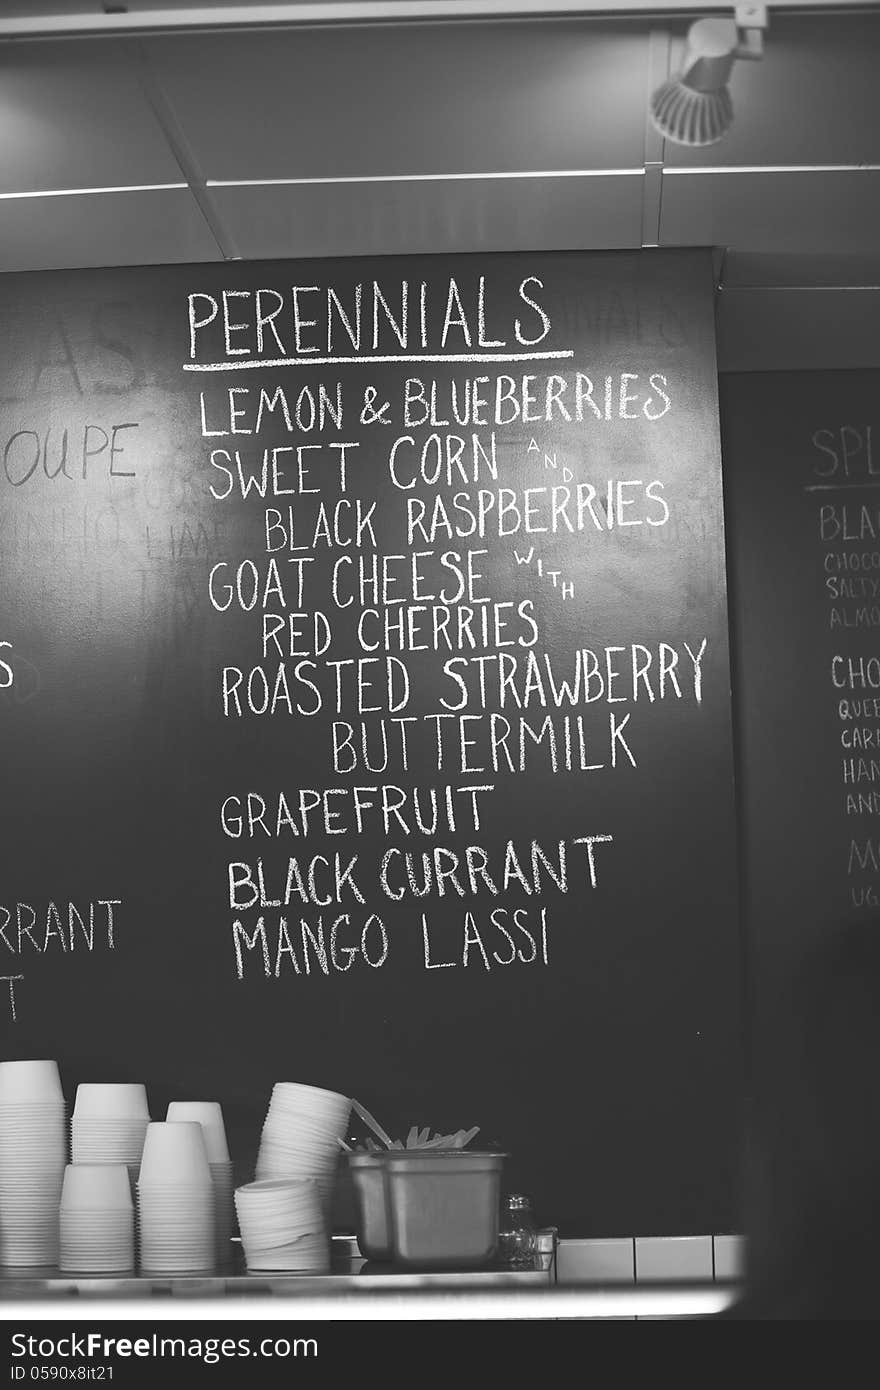 PERENNIALS
LEMON & BLUEBERRIES
SWEET CORN AND
BLACK RASPBERRIES
GOAT CHEESE WITH
RED CHERRIES
ROASTED STRAWBERRY
BUTTERMILK
GRAPEFRUIT
BLACK CURRANT
MANGO LASSI
OUPE
S
RRANT
T
SPL
BLA
CHOCO
SALTY
ALMO
CHO
QUEE
CAR
HAN
AND
UG
StockFreeImages.com
ID 0590x8it21